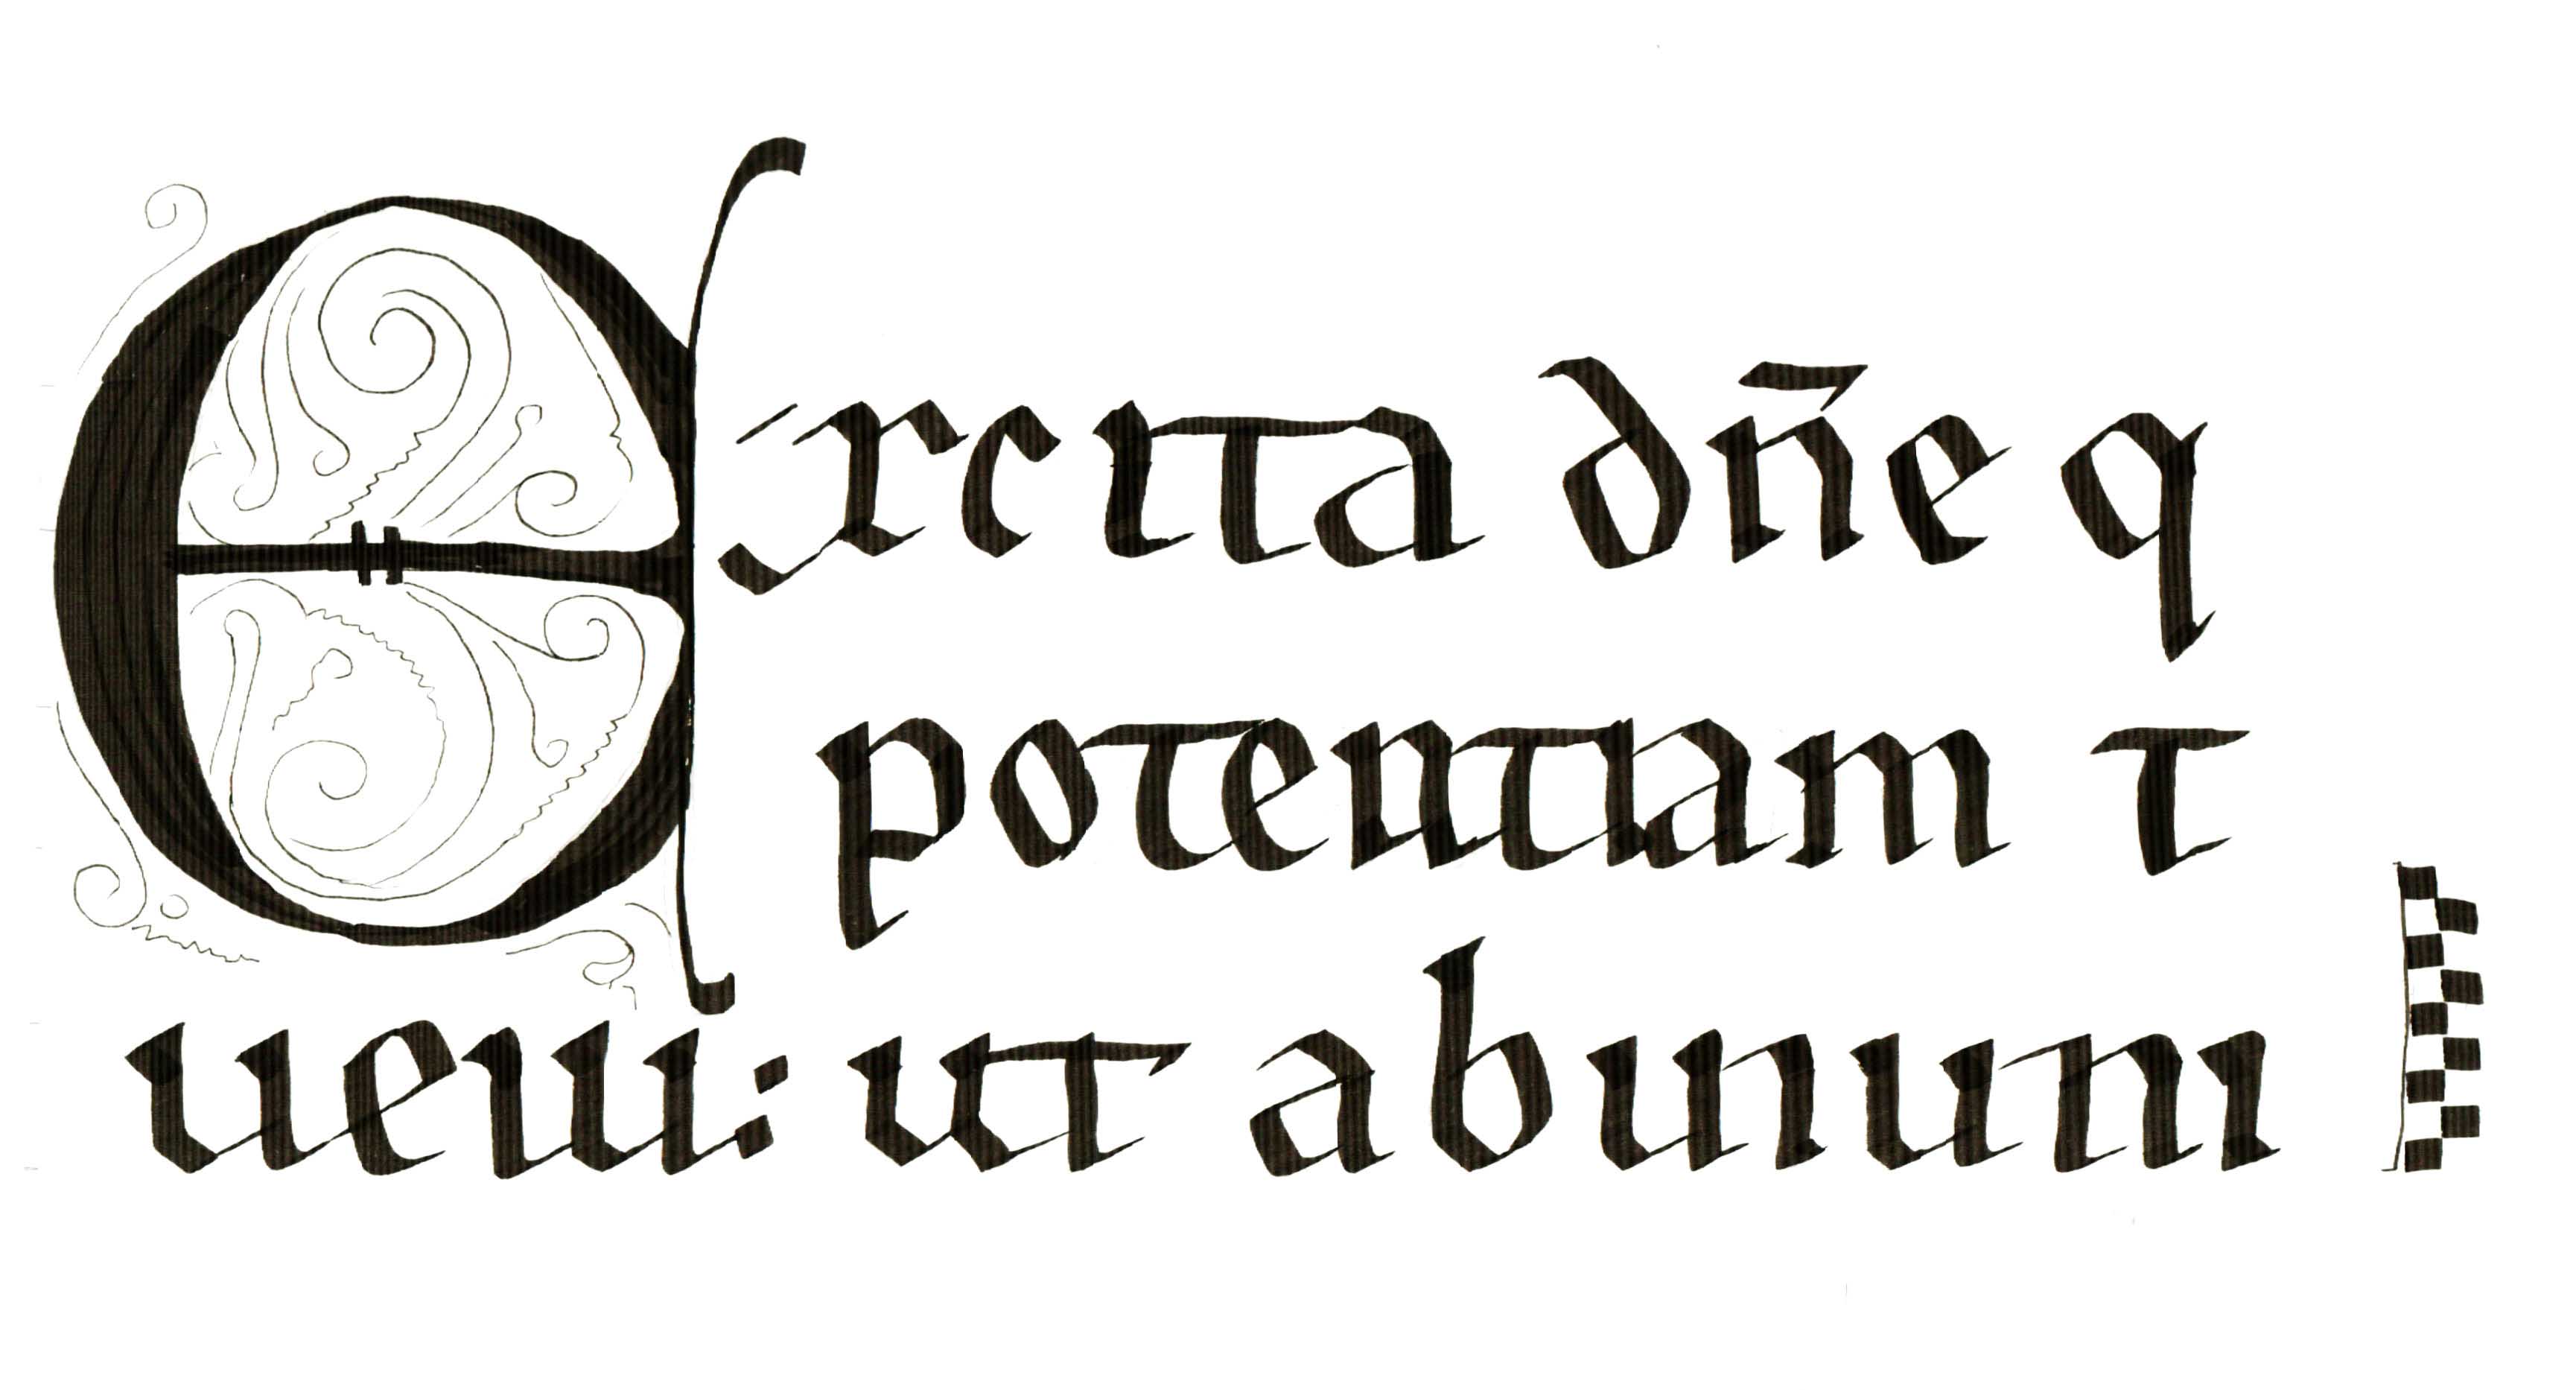 Excita dñe q
potentiam t
ueni: ut abimmi